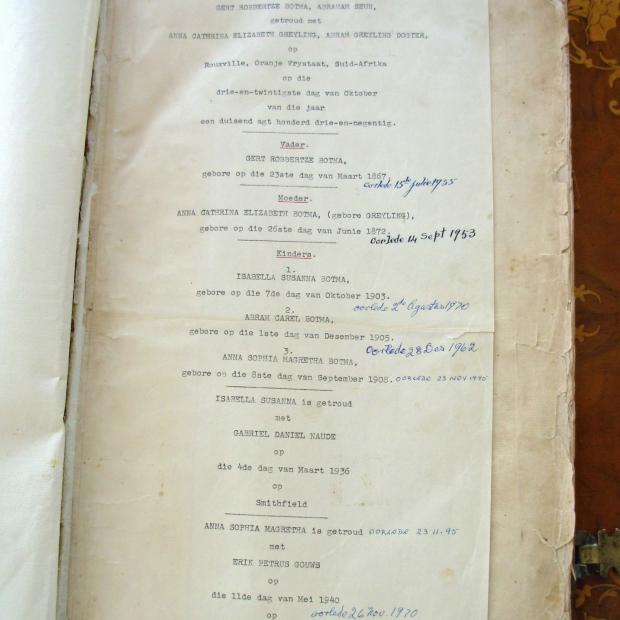 GERT ROBBERTZE BOTMA, ABRAHAM SEUN,
getroud met
ANNA CATHRINA ELIZABETH GREYLING, ABRAM GREYLING DOGTER,
op
Rouxville, Oranje Vrystaat, Suid-Afrika
op die
drie-en-twintigste dag van Oktober
van die jaar
een duisend agt honderd drie-en-negentig.
Vader.
GERT ROBBERTZE BOTMA,
gebore op die 23ste dag van Maart 1867.
oorlede 15de Julie 1955
Moeder.
ANNA CATHRINA ELIZABETH BOTMA, (gebore GREYLING),
gebore op die 26ste dag van Junie 1872.
Oorlede 14 Sept 1953
Kinders.
1.
ISABELLA SUSANNA BOTMA,
gebore op die 7de dag van Oktober 1903.
oorlede 2de Agastus 1970
2.
ABRAM CAREL BOTMA,
gebore op die 1ste dag van Desember 1905.
Oorlede 28 Des 1962
3.
ANNA SOPHIA MAGRETHA BOTMA,
gebore op die 8ste dag van September 1908. OORLEDE 23 NOV 1995
ISABELLA SUSANNA is getroud
met
GABRIEL DANIEL NAUDE
op
die 4de dag van Maart 1936
op
Smithfield
ANNA SOPHIA MAGRETHA is getroud OORLEDE 23.11.95
met
ERIK PETRUS GOUWS
op
die 11de dag van Mei 1940
op oorlede 26 Nov. 1970